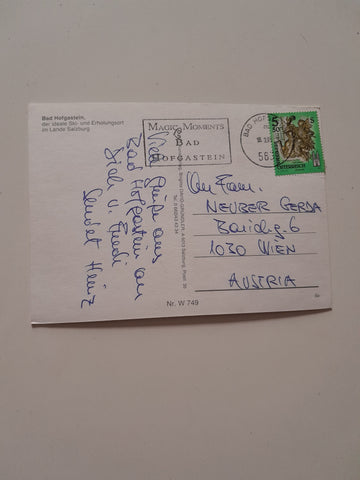 Bad Hofgastein,
der ideale Ski- und Erholungsort
im Lande Salzburg
MAGIC MOMENTS
BAD
HOFGASTEIN
BAD HOFG
563
5 S
ÖSTERREICH
Viele Grüße aus
Bad Hofgastein an
Dich u. Friedl
sendet Heinz
An Fam.
NEUBER GERDA
6
1030 WIEN
AUSTRIA
Nr. W 749